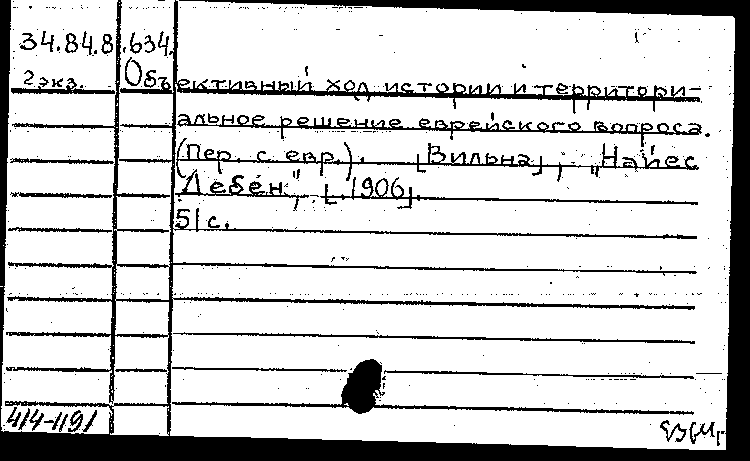 34.84.8.634.
2 экз. Объективный ход истории и территори-
альное решение еврейского вопроса.
(Пер. с евр.). [Вильна], "Найес
Лебен", [1906].
51 с.
414-1191